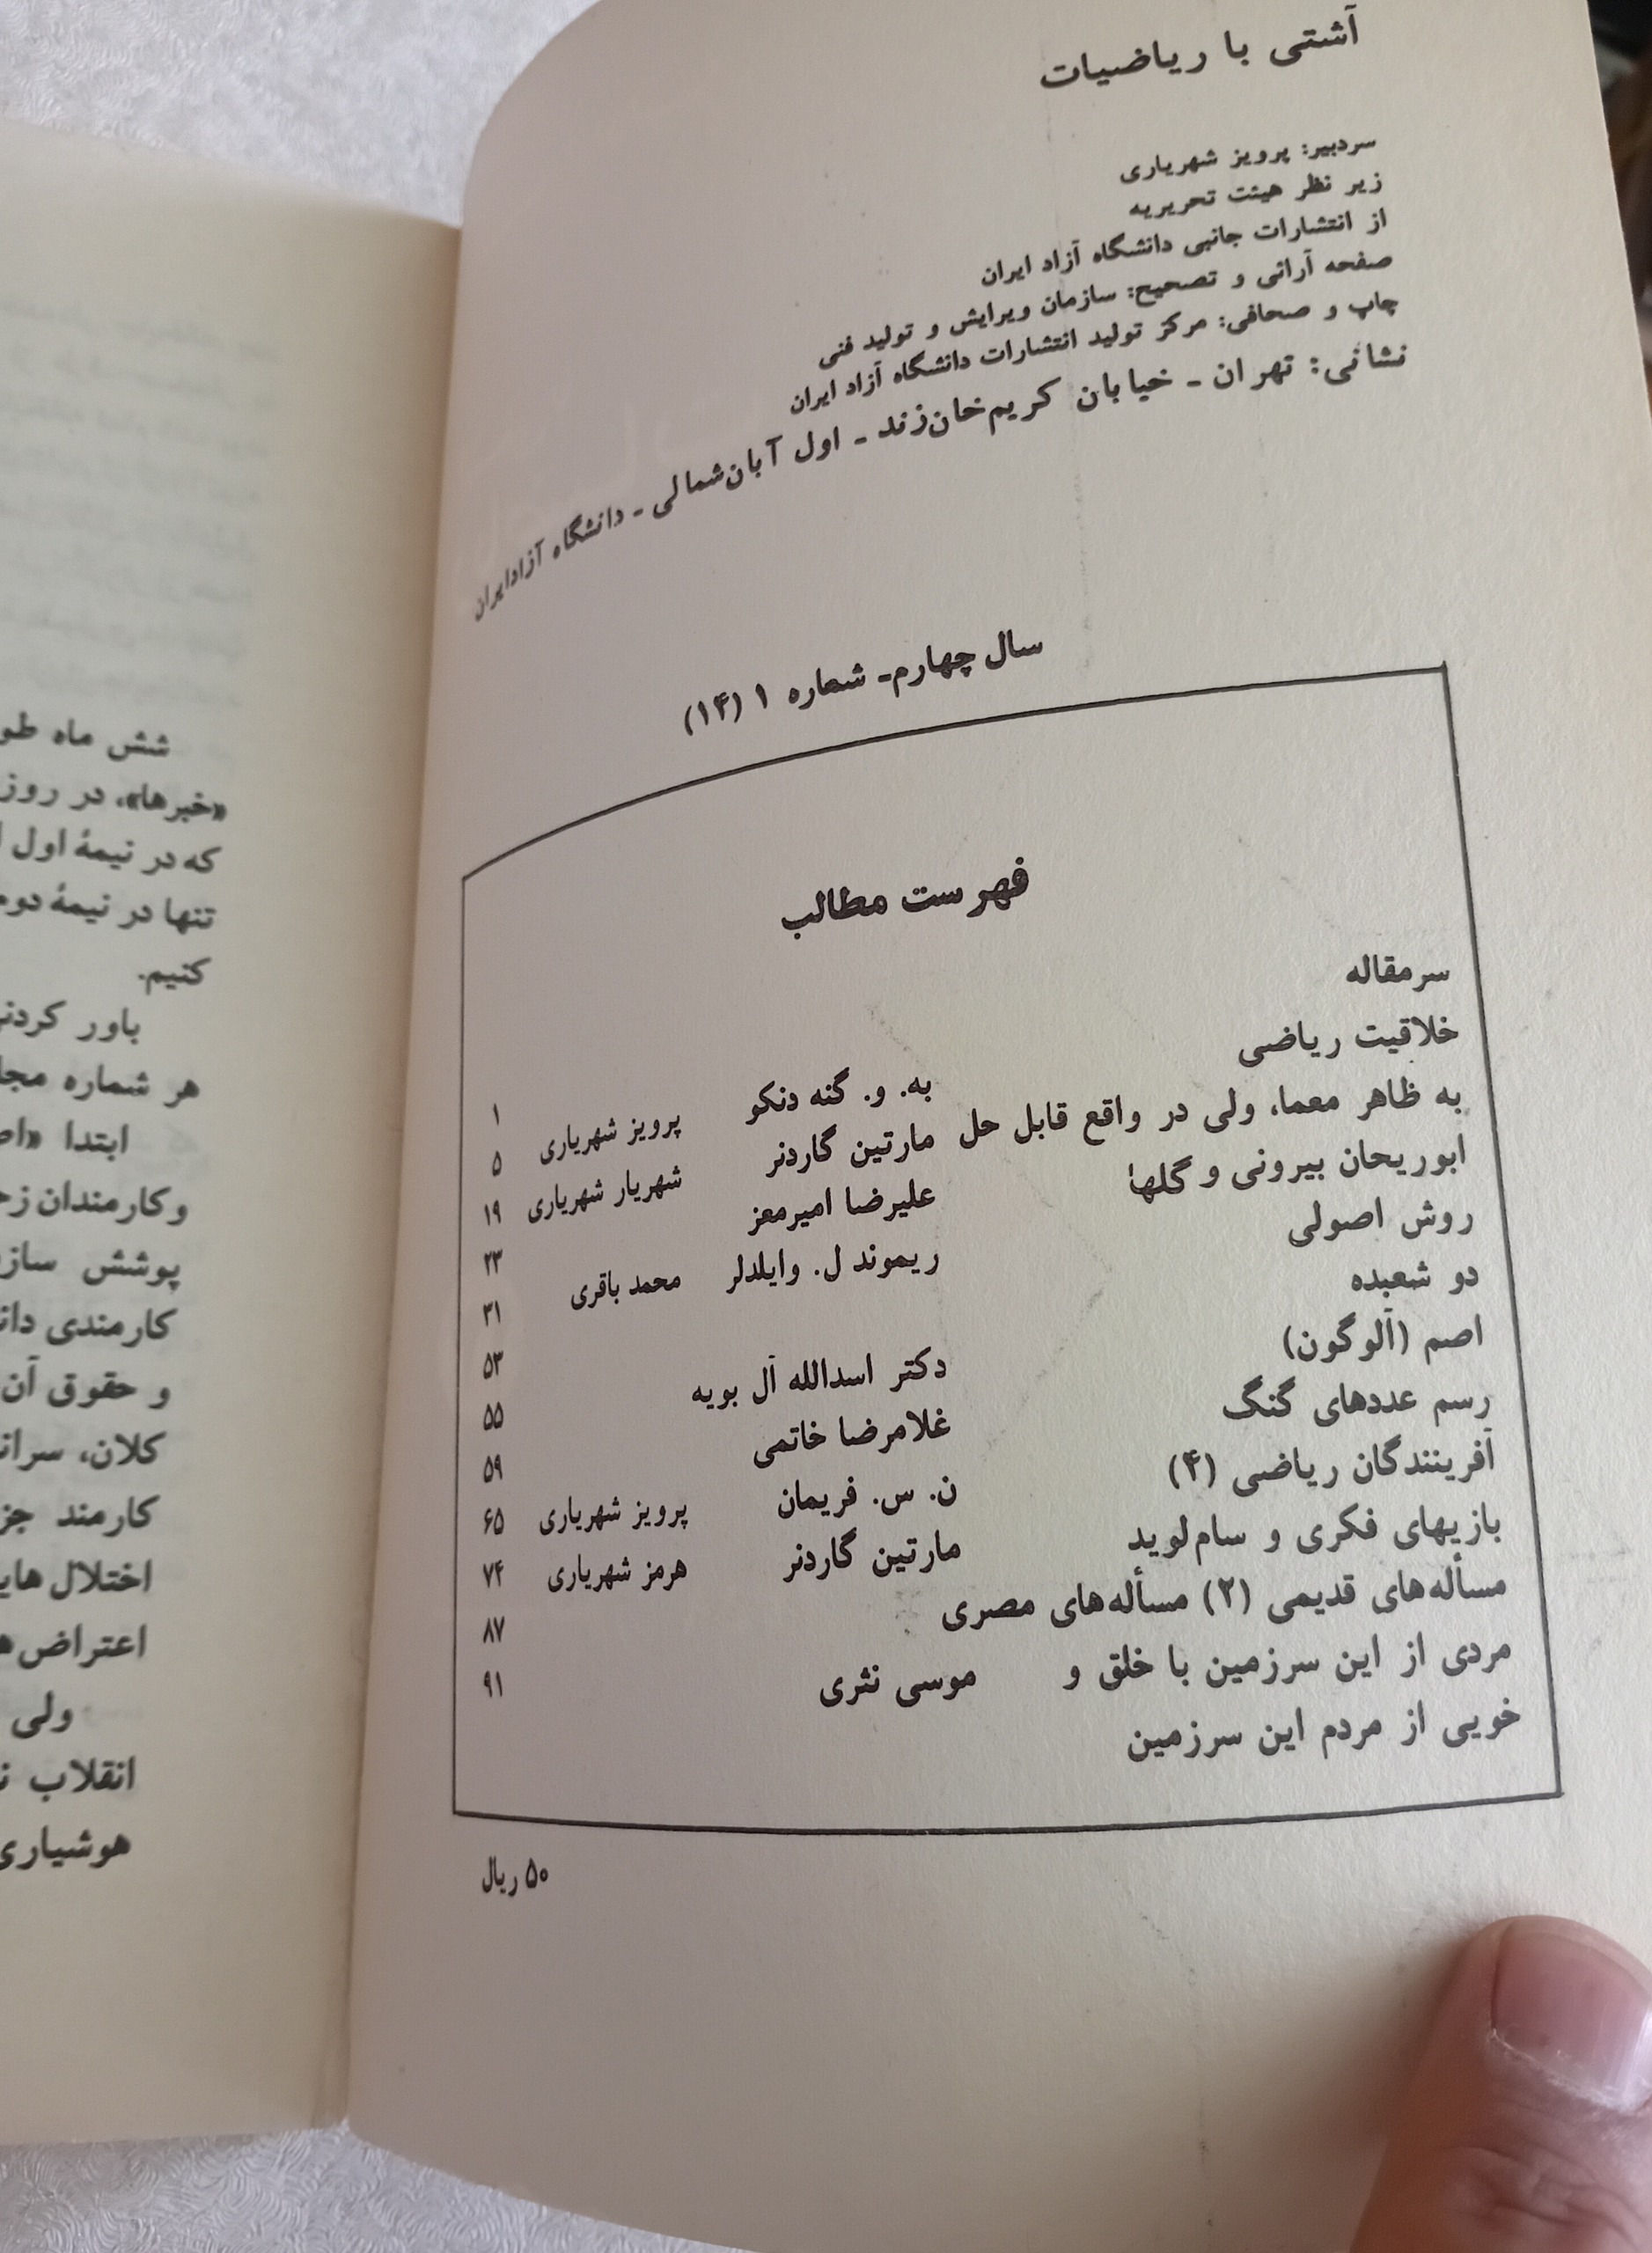 آشتی با ریاضیات
سردبیر: پرویز شهریاری
زیر نظر هیئت تحریریه
از انتشارات جانبی دانشگاه آزاد ایران
صفحه آرائی و تصحیح: سازمان ویرایش و تولید فنی
چاپ و صحافی: مرکز تولید انتشارات دانشگاه آزاد ایران
نشانی: تهران - خیابان کریم‌خان‌زند - اول آبان‌شمالی - دانشگاه آزادایران
سال چهارم- شماره ۱ (۱۴)
فهرست مطالب
سرمقاله ۱
خلاقیت ریاضی به. و. گنه دنکو پرویز شهریاری ۵
به ظاهر معما، ولی در واقع قابل حل مارتین گاردنر شهریار شهریاری ۱۹
ابوریحان بیرونی و گلها علیرضا امیرمعز ۲۳
روش اصولی ریموند ل. وایلدلر محمد باقری ۳۱
دو شعبده ۵۳
اصم (آلوگون) دکتر اسدالله آل بویه ۵۵
رسم عددهای گنگ غلامرضا خاتمی ۵۹
آفرینندگان ریاضی (۴) ن. س. فریمان پرویز شهریاری ۶۵
بازیهای فکری و سام‌لوید مارتین گاردنر هرمز شهریاری ۷۴
مسأله‌های قدیمی (۲) مسأله‌های مصری ۸۷
مردی از این سرزمین با خلق و موسی نثری ۹۱
خویی از مردم این سرزمین
۵۰ ریال
شش ماه
«خبرها»، در روز
که در نیمهٔ اول
تنها در نیمهٔ دوم
کنیم.
باور
هر شماره
ابتدا
وکارمندان
پوشش
کارمندی
و حقوق آن
کلان،
کارمند
اختلال
اعتراض
ولی
انقلاب
هوشیاری